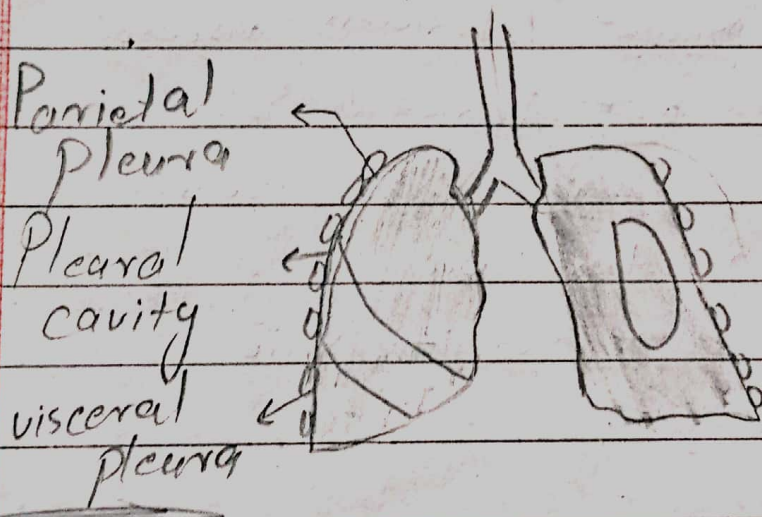 Parietal
pleura
Pleural
cavity
visceral
pleura